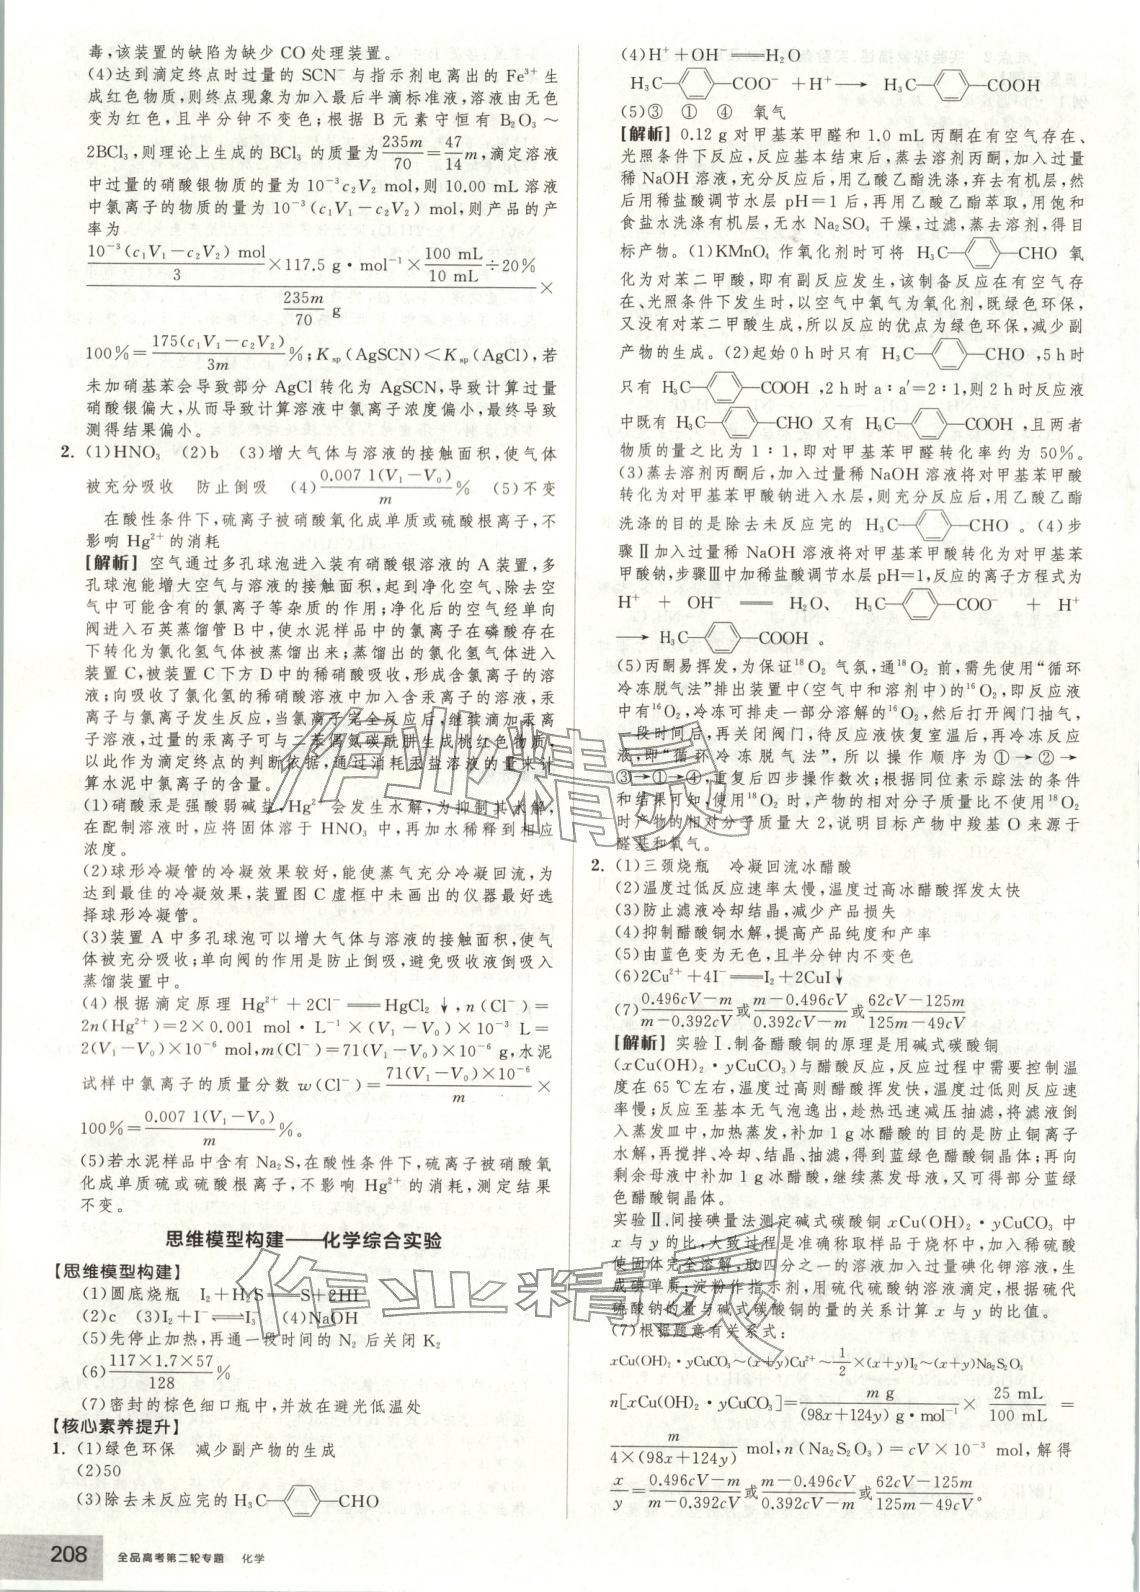 毒,该装置的缺陷为缺少 CO 处理装置。
(4)达到滴定终点时过量的 SCN⁻ 与指示剂电离出的 Fe³⁺ 生
成红色物质,则终点现象为加入最后半滴标准液,溶液由无色
变为红色,且半分钟不变色;根据 B 元素守恒有 B₂O₃~
2BCl₃,则理论上生成的 BCl₃ 的质量为 235m/70 = 47/14 m,滴定溶液
中过量的硝酸银物质的量为 10⁻³c₂V₂ mol,则 10.00 mL 溶液
中氯离子的物质的量为 10⁻³(c₁V₁-c₂V₂) mol,则产品的产
率为
10⁻³(c₁V₁-c₂V₂) mol/3 ×117.5 g·mol⁻¹× 100 mL/10 mL ÷20% ×
235m/70 g
100%= 175(c₁V₁-c₂V₂)/3m %;Kₛₚ(AgSCN)<Kₛₚ(AgCl),若
未加硝基苯会导致部分 AgCl 转化为 AgSCN,导致计算过量
硝酸银偏大,从而导致计算溶液中氯离子浓度偏小,最终导致
测得结果偏小。
2. (1)HNO₃ (2)b (3)增大气体与溶液的接触面积,使气体
被充分吸收 防止倒吸 (4) 0.007 1(V₁-V₀)/m % (5)不变
在酸性条件下,硫离子被硝酸氧化成单质或硫酸根离子,不
影响 Hg²⁺ 的消耗
[解析] 空气通过多孔球泡进入装有硝酸银溶液的 A 装置,多
孔球泡能增大空气与溶液的接触面积,起到净化空气、除去空
气中可能含有的氯离子等杂质的作用;净化后的空气经单向
阀进入石英蒸馏管 B 中,使水泥样品中的氯离子在磷酸存在
下转化为氯化氢气体被蒸馏出来;蒸馏出的氯化氢气体进入
装置 C,被装置 C 下方 D 中的稀硝酸吸收,形成含氯离子的溶
液;向吸收了氯化氢的稀硝酸溶液中加入含汞离子的溶液,汞
离子与氯离子发生反应,当氯离子完全反应后,继续滴加汞离
子溶液,过量的汞离子可与二苯偶氮碳酰肼生成桃红色物质,
以此作为滴定终点的判断依据,通过消耗汞盐溶液的量来计
算水泥中氯离子的含量。
(1)硝酸汞是强酸弱碱盐,Hg²⁺ 会发生水解,为抑制其水解,
在配制溶液时,应将固体溶于 HNO₃ 中,再加水稀释到相应
浓度。
(2)球形冷凝管的冷凝效果较好,能使蒸气充分冷凝回流,为
达到最佳的冷凝效果,装置图 C 虚框中未画出的仪器最好选
择球形冷凝管。
(3)装置 A 中多孔球泡可以增大气体与溶液的接触面积,使气
体被充分吸收;单向阀的作用是防止倒吸,避免吸收液倒吸入
蒸馏装置中。
(4)根据滴定原理 Hg²⁺+2Cl⁻══HgCl₂↓,n(Cl⁻)=
2n(Hg²⁺)=2×0.001 mol·L⁻¹×(V₁-V₀)×10⁻³ L=
2(V₁-V₀)×10⁻⁶ mol,m(Cl⁻)=71(V₁-V₀)×10⁻⁶ g,水泥
试样中氯离子的质量分数 w(Cl⁻)= 71(V₁-V₀)×10⁻⁶/m ×
100%= 0.007 1(V₁-V₀)/m %。
(5)若水泥样品中含有 Na₂S,在酸性条件下,硫离子被硝酸氧
化成单质硫或硫酸根离子,不影响 Hg²⁺ 的消耗,测定结果
不变。
思维模型构建——化学综合实验
【思维模型构建】
(1)圆底烧瓶 I₂+H₂S══S+2HI
(2)c (3)I₂+I⁻⇌I₃⁻ (4)NaOH
(5)先停止加热,再通一段时间的 N₂ 后关闭 K₂
(6) 117×1.7×57/128 %
(7)密封的棕色细口瓶中,并放在避光低温处
【核心素养提升】
1. (1)绿色环保 减少副产物的生成
(2)50
(3)除去未反应完的 H₃C—⌬—CHO
(4)H⁺+OH⁻══H₂O
H₃C—⌬—COO⁻ +H⁺⟶ H₃C—⌬—COOH
(5)③ ① ④ 氧气
[解析] 0.12 g 对甲基苯甲醛和 1.0 mL 丙酮在有空气存在、
光照条件下反应,反应基本结束后,蒸去溶剂丙酮,加入过量
稀 NaOH 溶液,充分反应后,用乙酸乙酯洗涤,弃去有机层,然
后用稀盐酸调节水层 pH=1 后,再用乙酸乙酯萃取,用饱和
食盐水洗涤有机层,无水 Na₂SO₄ 干燥,过滤,蒸去溶剂,得目
标产物。(1)KMnO₄ 作氧化剂时可将 H₃C—⌬—CHO 氧
化为对苯二甲酸,即有副反应发生,该制备反应在有空气存
在、光照条件下发生时,以空气中氧气为氧化剂,既绿色环保,
又没有对苯二甲酸生成,所以反应的优点为绿色环保,减少副
产物的生成。(2)起始 0 h 时只有 H₃C—⌬—CHO ,5 h 时
只有 H₃C—⌬—COOH ,2 h 时 a∶a′=2∶1,则 2 h 时反应液
中既有 H₃C—⌬—CHO 又有 H₃C—⌬—COOH ,且两者
物质的量之比为 1∶1,即对甲基苯甲醛转化率约为 50%。
(3)蒸去溶剂丙酮后,加入过量稀 NaOH 溶液将对甲基苯甲酸
转化为对甲基苯甲酸钠进入水层,则充分反应后,用乙酸乙酯
洗涤的目的是除去未反应完的 H₃C—⌬—CHO 。(4)步
骤Ⅱ加入过量稀 NaOH 溶液将对甲基苯甲酸转化为对甲基苯
甲酸钠,步骤Ⅲ中加稀盐酸调节水层 pH=1,反应的离子方程式为
H⁺ + OH⁻ ══ H₂O、 H₃C—⌬—COO⁻ + H⁺
⟶ H₃C—⌬—COOH 。
(5)丙酮易挥发,为保证¹⁸O₂ 气氛,通¹⁸O₂ 前,需先使用“循环
冷冻脱气法”排出装置中(空气中和溶剂中)的¹⁶O₂,即反应液
中有¹⁶O₂,冷冻可排走一部分溶解的¹⁶O₂,然后打开阀门抽气,
一段时间后,再关闭阀门,待反应液恢复室温后,再冷冻反应
液,即“循环冷冻脱气法”,所以操作顺序为①→②→
③→①→④,重复后四步操作数次;根据同位素示踪法的条件
和结果可知,使用¹⁸O₂ 时,产物的相对分子质量比不使用¹⁸O₂
时产物的相对分子质量大 2,说明目标产物中羧基 O 来源于
醛基和氧气。
2. (1)三颈烧瓶 冷凝回流冰醋酸
(2)温度过低反应速率太慢,温度过高冰醋酸挥发太快
(3)防止滤液冷却结晶,减少产品损失
(4)抑制醋酸铜水解,提高产品纯度和产率
(5)由蓝色变为无色,且半分钟内不变色
(6)2Cu²⁺+4I⁻══I₂+2CuI↓
(7) 0.496cV-m/m-0.392cV 或 m-0.496cV/0.392cV-m 或 62cV-125m/125m-49cV
[解析] 实验Ⅰ.制备醋酸铜的原理是用碱式碳酸铜
(xCu(OH)₂·yCuCO₃)与醋酸反应,反应过程中需要控制温
度在 65 ℃左右,温度过高则醋酸挥发快,温度过低则反应速
率慢;反应至基本无气泡逸出,趁热迅速减压抽滤,将滤液倒
入蒸发皿中,加热蒸发,补加 1 g 冰醋酸的目的是防止铜离子
水解,再搅拌、冷却、结晶、抽滤,得到蓝绿色醋酸铜晶体;再向
剩余母液中补加 1 g 冰醋酸,继续蒸发母液,又可得部分蓝绿
色醋酸铜晶体。
实验Ⅱ.间接碘量法测定碱式碳酸铜 xCu(OH)₂·yCuCO₃ 中
x 与 y 的比,大致过程是准确称取样品于烧杯中,加入稀硫酸
使固体完全溶解,取四分之一的溶液加入过量碘化钾溶液,生
成碘单质;淀粉作指示剂,用硫代硫酸钠溶液滴定,根据硫代
硫酸钠的量与碱式碳酸铜的量的关系计算 x 与 y 的比值。
(7)根据题意有关系式:
xCu(OH)₂·yCuCO₃~(x+y)Cu²⁺~1/2×(x+y)I₂~(x+y)Na₂S₂O₃
n[xCu(OH)₂·yCuCO₃]= m g/(98x+124y) g·mol⁻¹ × 25 mL/100 mL =
m/4×(98x+124y) mol,n(Na₂S₂O₃)=cV×10⁻³ mol,解得
x/y = 0.496cV-m/m-0.392cV 或 m-0.496cV/0.392cV-m 或 62cV-125m/125m-49cV。
作业精灵
作业精灵
208 全品高考第二轮专题 化学